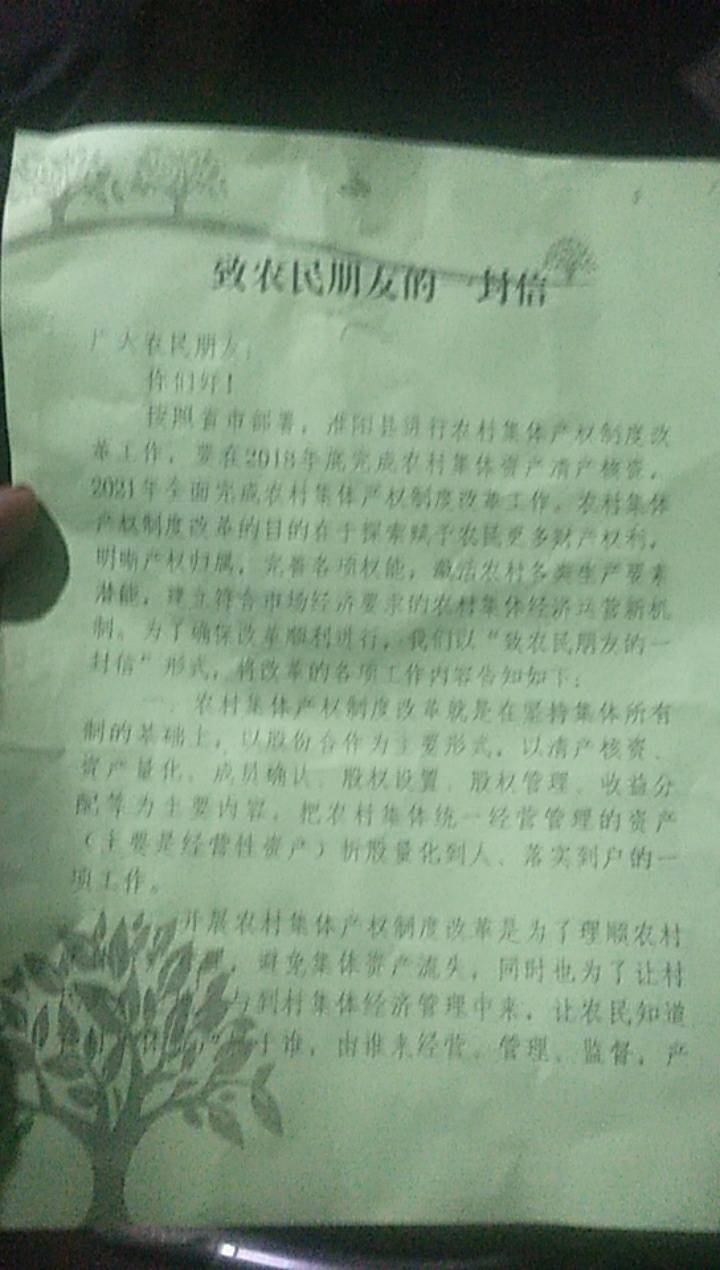 致农民朋友的一封信
广大农民朋友：
你们好！
按照省市部署，淮阳县进行农村集体产权制度改
革工作，要在2018年底完成农村集体资产清产核资，
2021年全面完成农村集体产权制度改革工作。农村集体
产权制度改革的目的在于探索赋予农民更多财产权利，
明晰产权归属，完善各项权能，激活农村各类生产要素
潜能，建立符合市场经济要求的农村集体经济运营新机
制。为了确保改革顺利进行，我们以“致农民朋友的一
封信”形式，将改革的各项工作内容告知如下：
一、农村集体产权制度改革就是在坚持集体所有
制的基础上，以股份合作为主要形式，以清产核资、
资产量化、成员确认、股权设置、股权管理、收益分
配等为主要内容，把农村集体统一经营管理的资产
（主要是经营性资产）折股量化到人、落实到户的一
项工作。
开展农村集体产权制度改革是为了理顺农村
，避免集体资产流失，同时也为了让村
与到村集体经济管理中来，让农民知道
于谁，由谁来经营、管理、监督，产